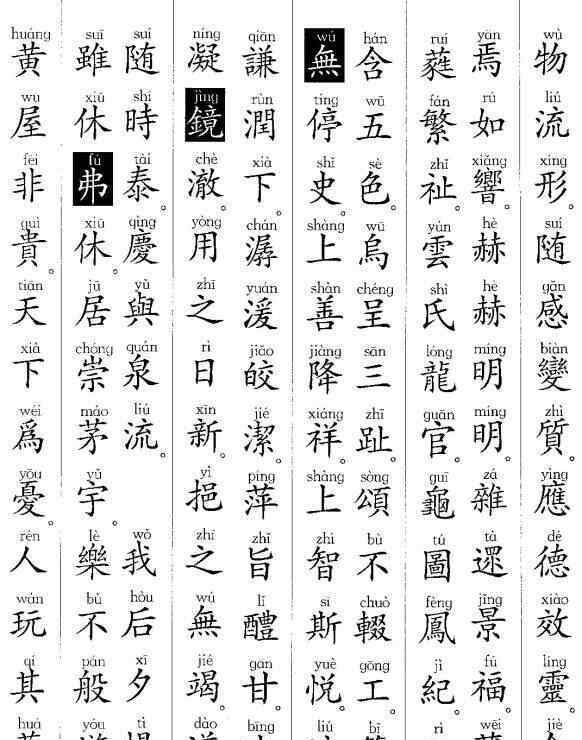 wù liú xíng suí gǎn biàn zhì yìng dé xiào líng jiè
物流形。随感變質。應德效靈
yān rú xiǎng hè hè míng míng zá tà jǐng fú wēi
焉如響。赫赫明明。雜遝景福
ruí fán zhǐ yún shì lóng guān guī tú fèng jì rì
蕤繁祉。雲氏龍官。龜圖鳳紀
hán wǔ sè wū chéng sān zhǐ sòng bù chuò gōng bǐ
含五色。烏呈三趾。頌不輟工
wú tíng shǐ shàng shàn jiàng xiáng shàng zhì sī yuè liú
無停史。上善降祥。上智斯悅
qiān rùn xià chán yuán jiǎo jié píng zhǐ lǐ gān bīng
謙潤下。潺湲皎潔。萍旨醴甘
níng jìng chè yòng zhī rì xīn yì zhī wú jié dào
凝鏡澈。用之日新。挹之無竭
suí shí tài qìng yù quán liú wǒ hòu xī tì
随時泰。慶與泉流。我后夕
suī xiū fú xiū jū chóng máo yǔ lè bù pán yóu
雖休弗休居崇茅宇。樂不般
huáng wū fēi guì tiān xià wéi yōu rén wán qí huá
黄屋非貴。天下爲憂。人玩其